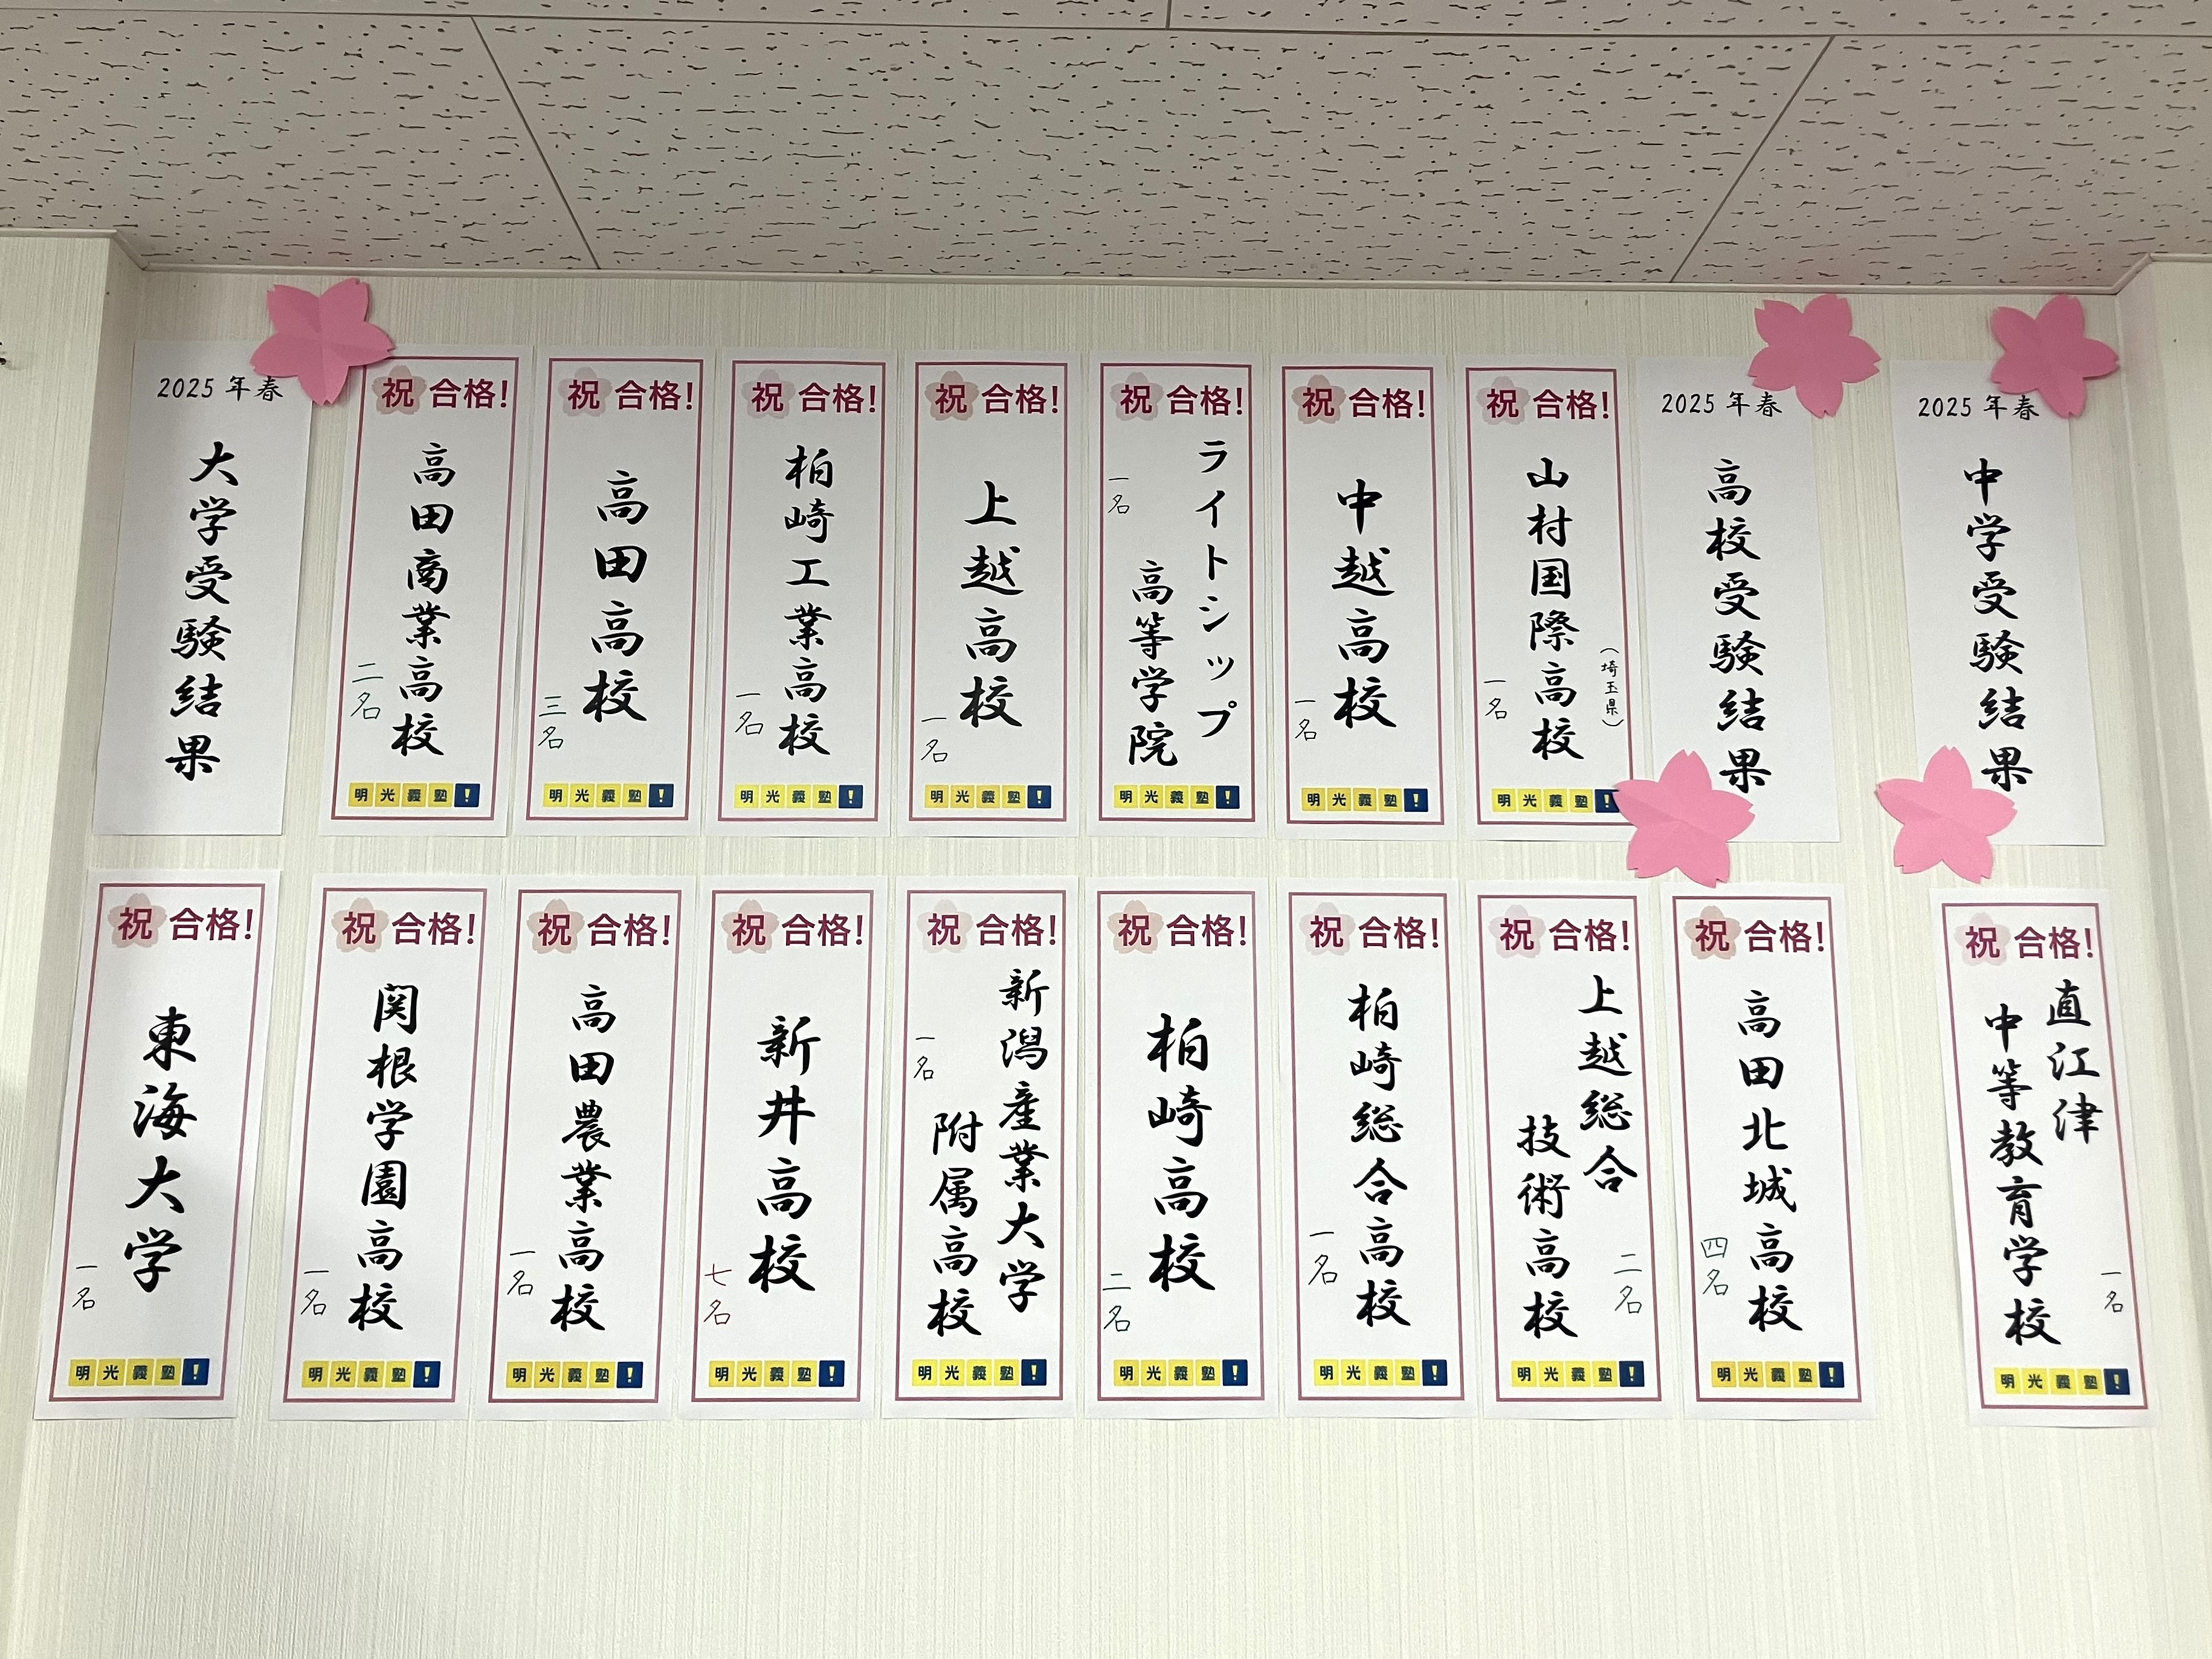 2025年春
中学受験結果
祝 合格!
直江津
中等教育学校
一名
明光義塾!
2025年春
高校受験結果
祝 合格!
山村国際高校
(埼玉県)
一名
明光義塾!
祝 合格!
中越高校
一名
明光義塾!
祝 合格!
ライトシップ
高等学院
一名
明光義塾!
祝 合格!
上越高校
一名
明光義塾!
祝 合格!
柏崎工業高校
一名
明光義塾!
祝 合格!
高田高校
三名
明光義塾!
祝 合格!
高田商業高校
二名
明光義塾!
祝 合格!
高田北城高校
四名
明光義塾!
祝 合格!
上越総合
技術高校
二名
明光義塾!
祝 合格!
柏崎総合高校
一名
明光義塾!
祝 合格!
柏崎高校
二名
明光義塾!
祝 合格!
新潟産業大学
附属高校
一名
明光義塾!
祝 合格!
新井高校
七名
明光義塾!
祝 合格!
高田農業高校
一名
明光義塾!
祝 合格!
関根学園高校
一名
明光義塾!
2025年春
大学受験結果
祝 合格!
東海大学
一名
明光義塾!